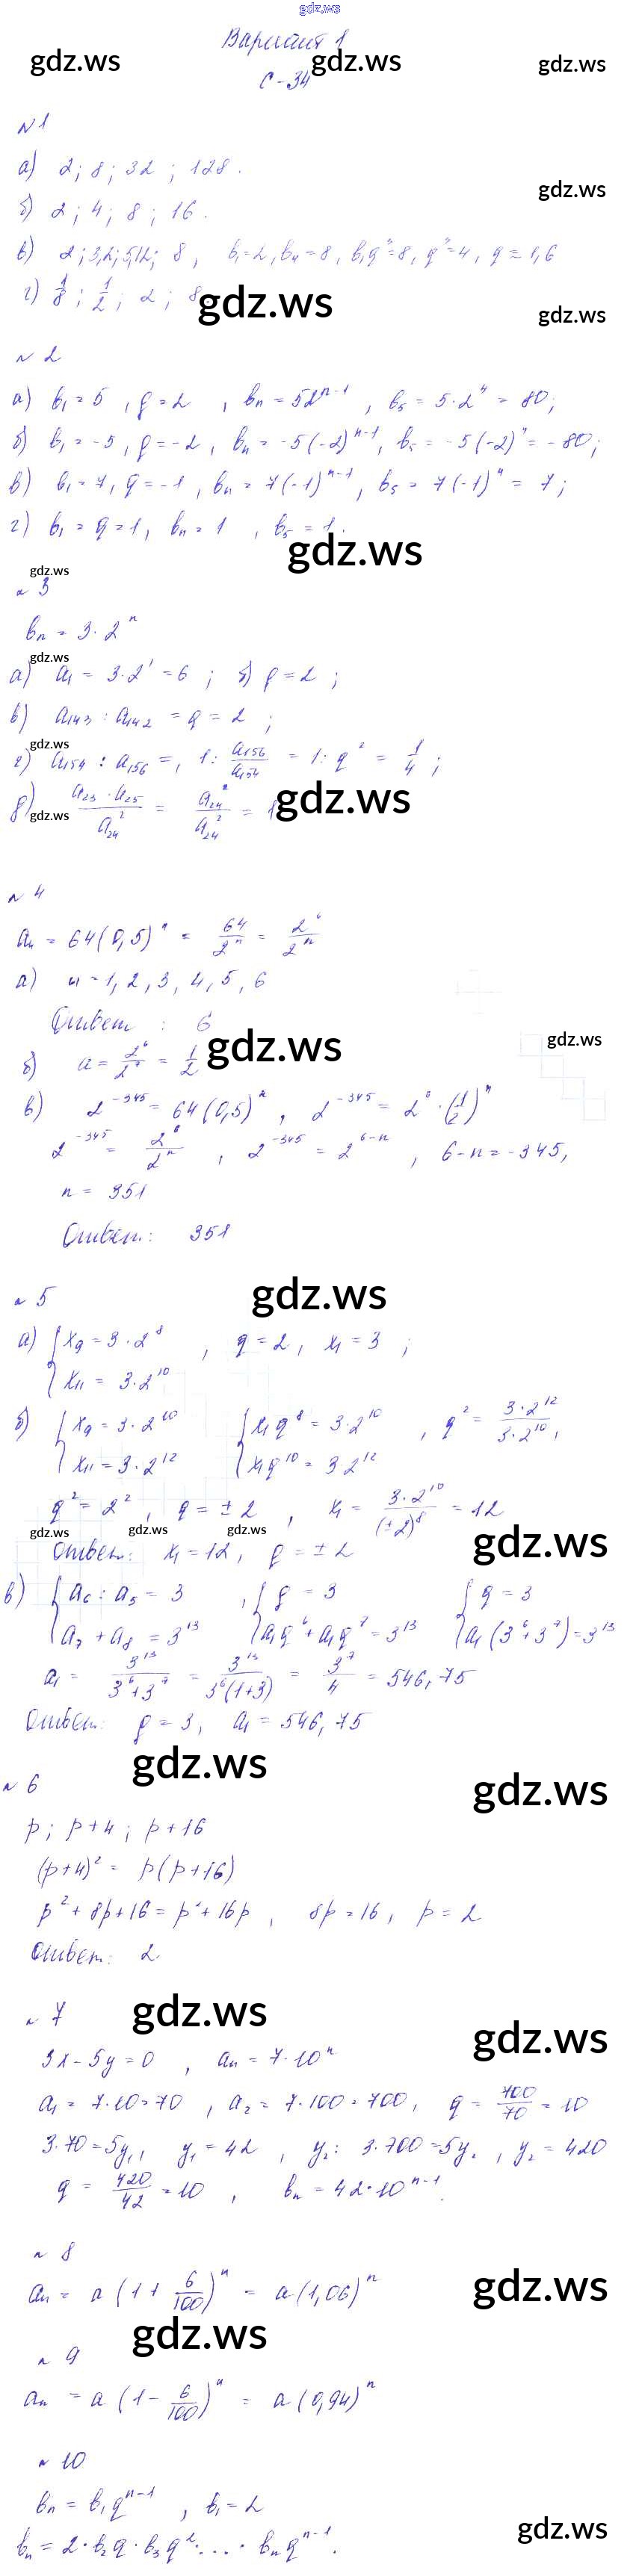 gdz.ws
Вариант 1
gdz.ws gdz.ws gdz.ws
С-34
№1
а) 2; 8; 32; 128.
gdz.ws
б) 2; 4; 8; 16.
в) 2; 3,2; 5,12; 8, b₁=2, b₄=8, b₁q³=8, q³=4, q≈1,6
г) 1/8; 1/2; 2; 8
gdz.ws gdz.ws
№2
а) b₁=5, q=2, bₙ=5·2ⁿ⁻¹, b₅=5·2⁴=80;
б) b₁=-5, q=-2, bₙ=-5(-2)ⁿ⁻¹, b₅=-5(-2)⁴=-80;
в) b₁=7, q=-1, bₙ=7(-1)ⁿ⁻¹, b₅=7(-1)⁴=7;
г) b₁=q=1, bₙ=1, b₅=1.
gdz.ws
gdz.ws
№3
bₙ=3·2ⁿ
gdz.ws
а) a₁=3·2¹=6; б) q=2;
в) a₁₄₃:a₁₄₂=q=2;
gdz.ws
г) a₁₅₄:a₁₅₆=, 1:a₁₅₆/a₁₅₄=1:q²=1/4;
gdz.ws
д) a₂₃·a₂₅/a₂₄²=a₂₄²/a₂₄²=1
gdz.ws
№4
aₙ=64(0,5)ⁿ=64/2ⁿ=2⁶/2ⁿ
а) n=1,2,3,4,5,6
Ответ: 6
gdz.ws gdz.ws
б) a=2⁶/2⁷=1/2
в) 2⁻³⁴⁵=64(0,5)ⁿ, 2⁻³⁴⁵=2⁶·(1/2)ⁿ
2⁻³⁴⁵=2⁶/2ⁿ, 2⁻³⁴⁵=2⁶⁻ⁿ, 6-n=-345,
n=351
Ответ: 351
gdz.ws
№5
а) {x₉=3·2⁸, q=2, x₁=3;
x₁₁=3·2¹⁰
б) {x₉=3·2¹⁰ {x₁q⁸=3·2¹⁰, q²=3·2¹²/3·2¹⁰,
x₁₁=3·2¹² x₁q¹⁰=3·2¹²
q²=2², q=±2, x₁=3·2¹⁰/(±2)⁸=12
gdz.ws gdz.ws gdz.ws gdz.ws
Ответ: x₁=12, q=±2
в) {a₆:a₅=3, {q=3 {q=3
a₇+a₈=3¹³ a₁q⁶+a₁q⁷=3¹³ a₁(3⁶+3⁷)=3¹³
a₁=3¹³/3⁶+3⁷=3¹³/3⁶(1+3)=3⁷/4=546,75
Ответ: q=3, a₁=546,75
gdz.ws gdz.ws
№6
p; p+4; p+16
(p+4)²=p(p+16)
p²+8p+16=p²+16p, 8p=16, p=2
Ответ: 2
gdz.ws gdz.ws
№7
3x-5y=0, aₙ=7·10ⁿ
a₁=7·10=70, a₂=7·100=700, q=700/70=10
3·70=5y₁, y₁=42, y₂: 3·700=5y₂, y₂=420
q=420/42=10, bₙ=42·10ⁿ⁻¹.
№8
aₙ=a(1+6/100)ⁿ=a(1,06)ⁿ
gdz.ws
gdz.ws
№9
aₙ=a(1-6/100)ⁿ=a(0,94)ⁿ
№10
bₙ=b₁qⁿ⁻¹, b₁=2
gdz.ws
bₙ=2·b₂q·b₃q²·...·bₙqⁿ⁻¹.